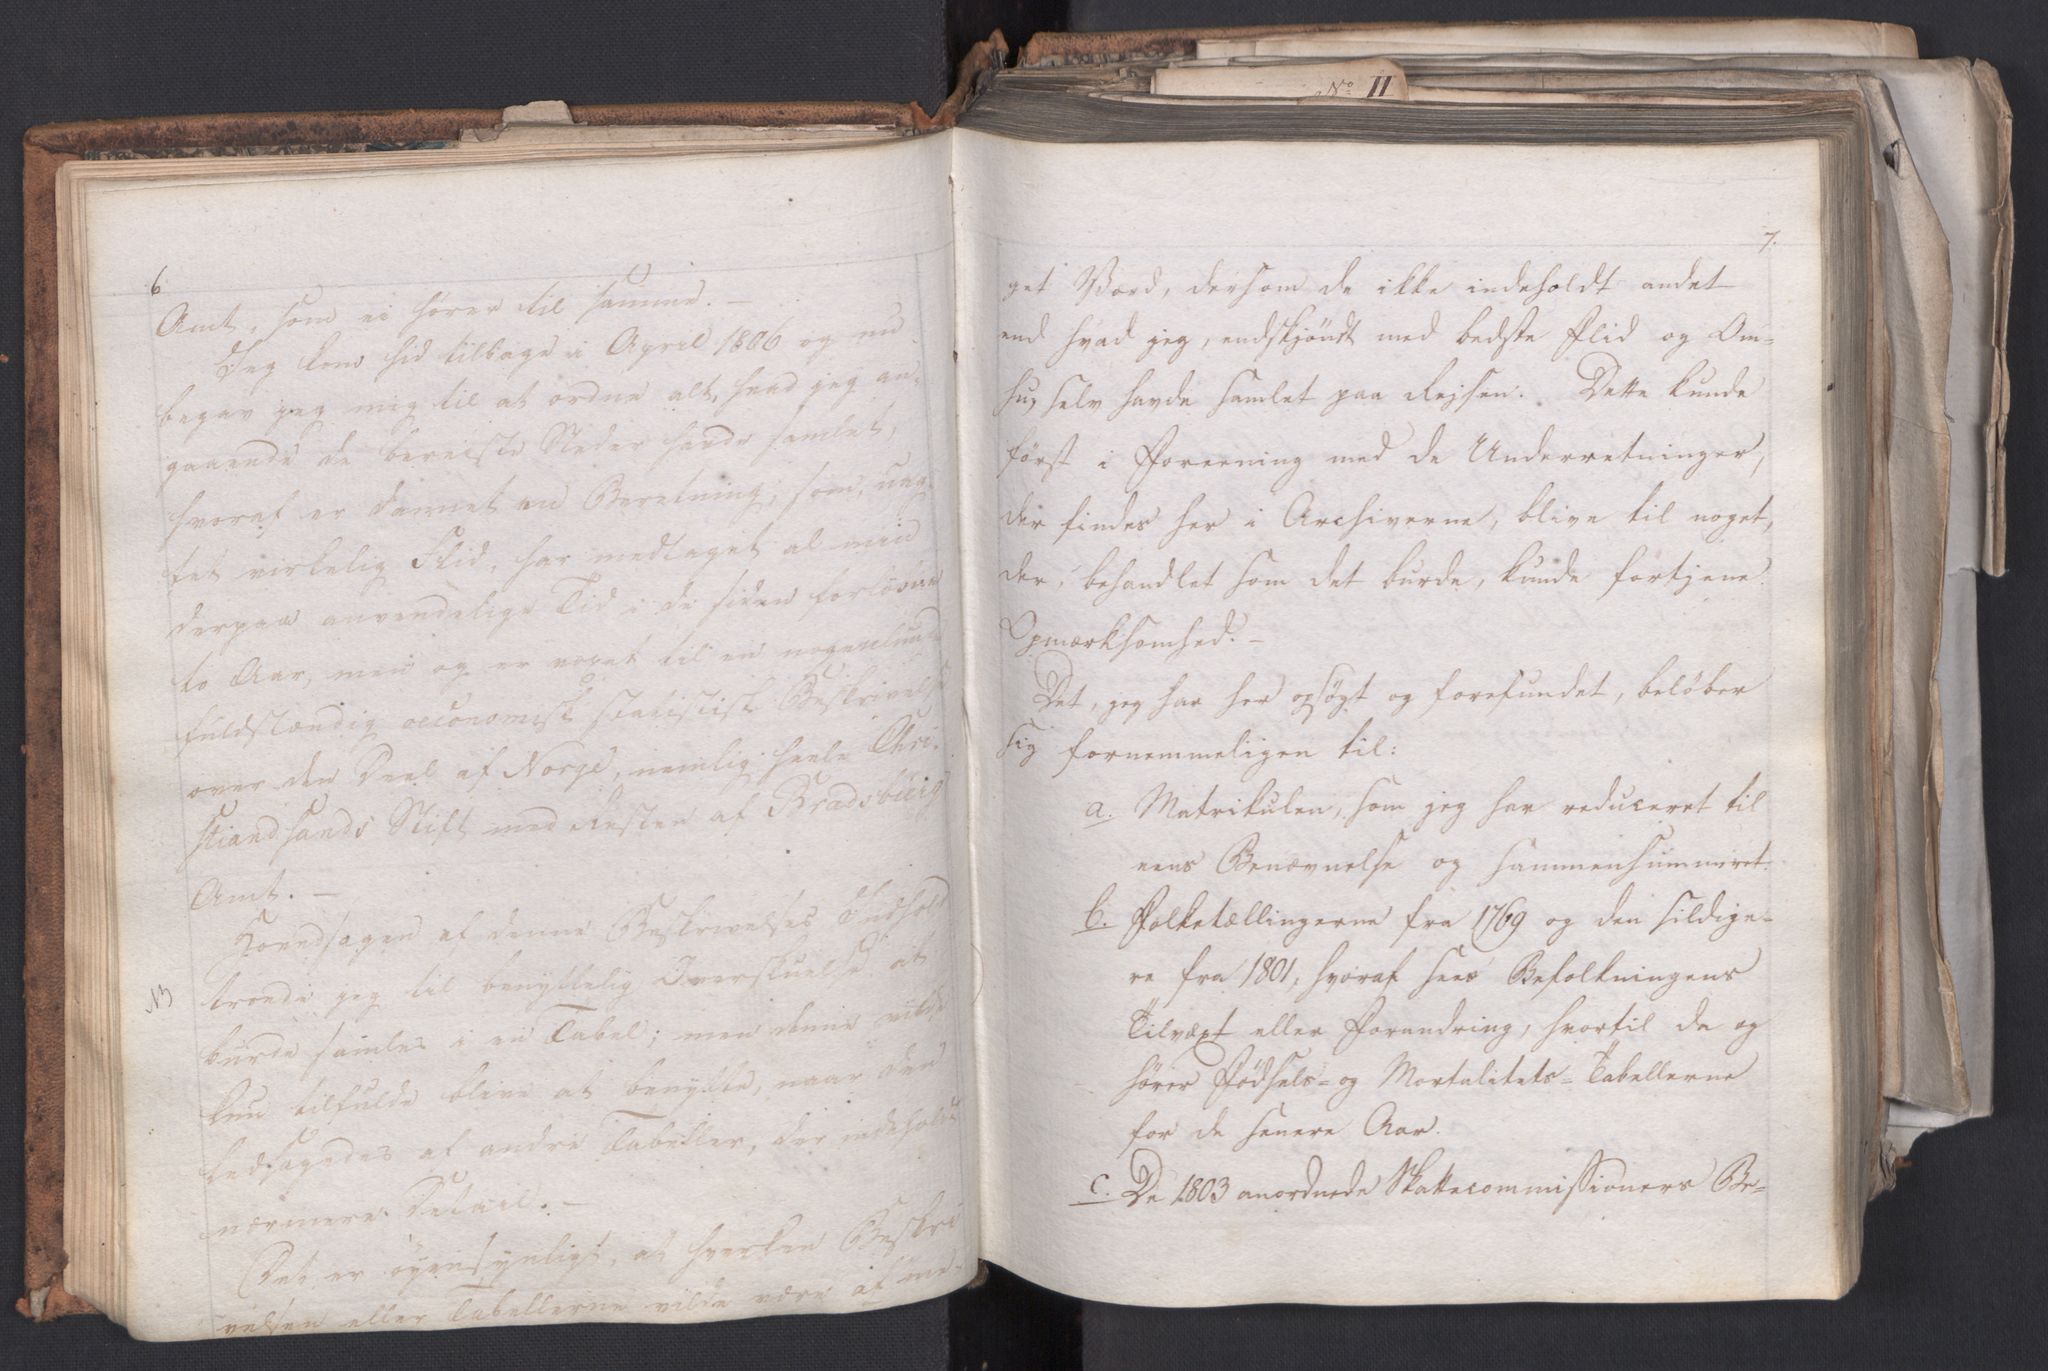 No II
6
Amt, som ei hører til samme. —
Jeg kom hid tilbage i April 1806 og nu
begav jeg mig til at ordne alt, hvad jeg an-
gaaende de bereiste Steder havde samlet,
hvoraf er dannet en Beretning, som, uag-
tet virkelig Flid, har medtaget al min
derpaa anvendelige Tid i de siden forløbne
to Aar, men og er voxet til en nogenlunde
fuldstændig oeconomisk statistisk Beskrivelse
over den Deel af Norge, nemlig heele Chri-
stiandsands Stift med Resten af Bradsbierg
Amt. —
Hovedsagen af denne Beskrivelses Indhold
troede jeg til benyttelig Overskuelse at
NB
burde samles i en Tabel; men denne vilde
kun tilfulde blive at benytte, naar den
ledsagedes af andre Tabeller, der indeholdt
nærmere Detail. —
Det er øyensynligt, at hverken Beskri-
velsen eller Tabellerne vilde være af me-
7.
get Værd, dersom de ikke indeholdt andet
end hvad jeg, endskjøndt med bedste Flid og Om-
hu, selv havde samlet paa Rejsen. Dette kunde
først i Foreening med de Underretninger,
der findes her i Archiverne, blive til noget,
der, behandlet som det burde, kunde fortjene
Opmærksomhed. —
Det, jeg har her opsøgt og forefundet, beløber
sig fornemmeligen til:
a. Matrikulen, som jeg har reduceret til
eens Benævnelse og sammensummeret.
b. Folketællingerne fra 1769 og den sildige-
re fra 1801, hvoraf sees Befolkningens
Tilvæxt eller Forandring, hvortil da og
hører Fødsels- og Mortalitets-Tabellerne
for de senere Aar.
c. De 1803 anordnede Skattecommissioners Be-